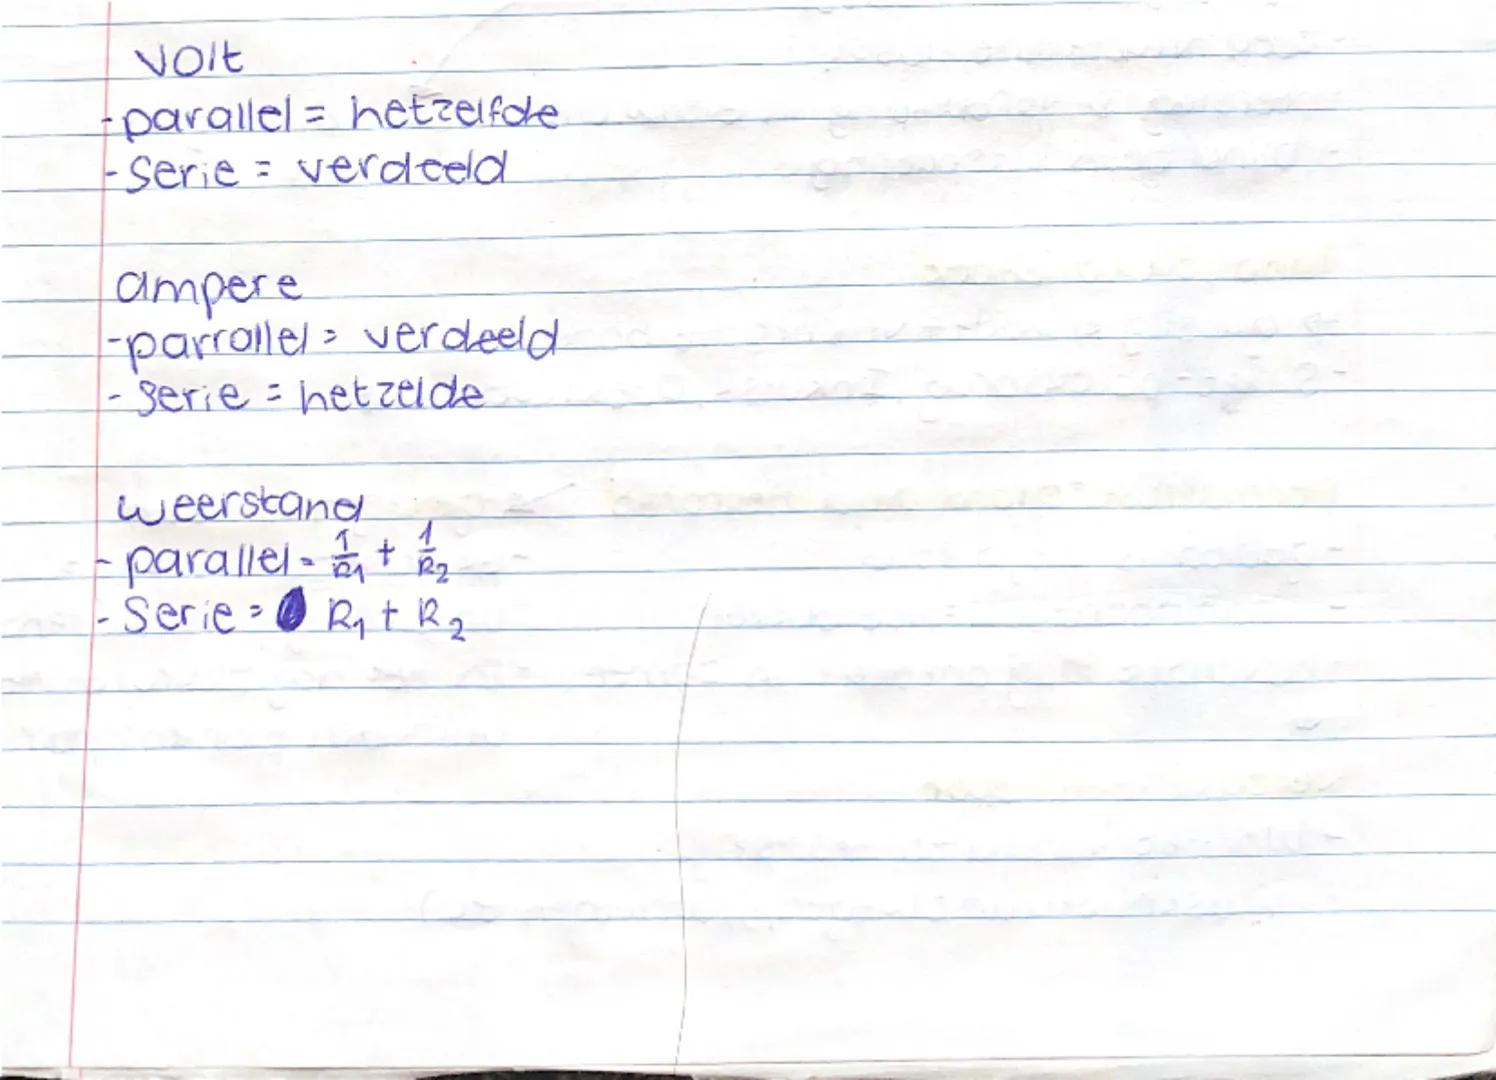 volt
- parallel = hetzelfde
- Serie = verdeeld
ampere
- parrallel = verdeeld
- Serie = hetzelde
weerstand
- parallel = 1/R1 + 1/R2
- Serie = R1 + R2